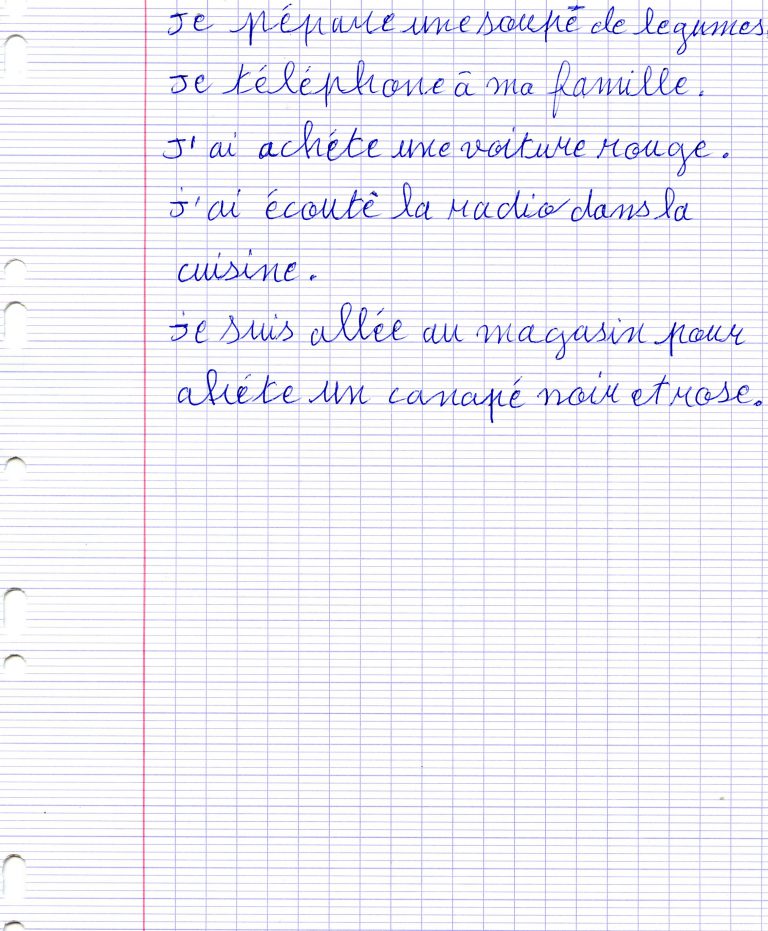 Je pépare une soupē de legumes.
Je téléphone ā ma famille.
J'ai achéte une voiture rouge.
j'ai écoutê la radio dans la
cuisine.
je suis allée au magasin pour
ahéte un canapé noir et rose.